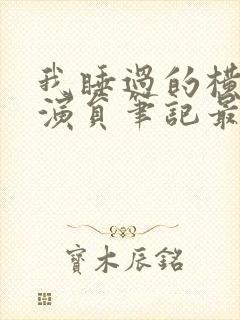 我睡過的橫
演員筆記最
寶木辰銘